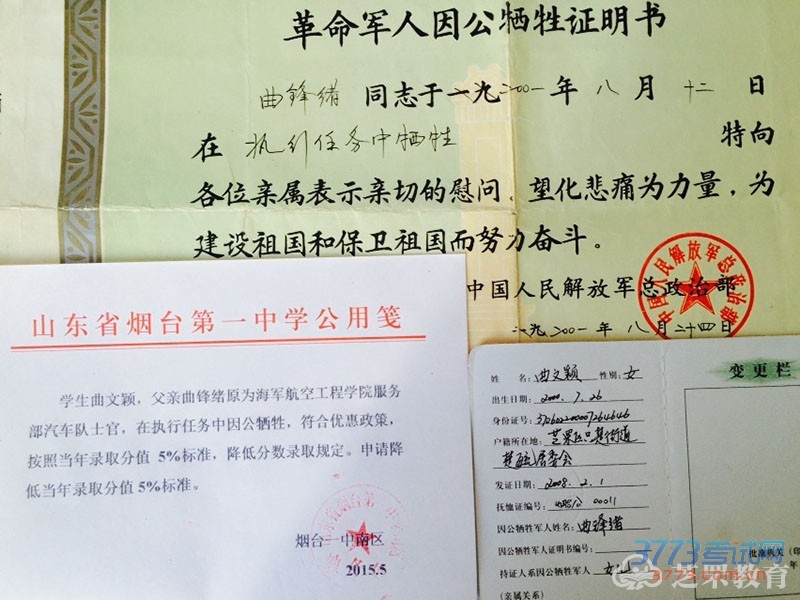 革命军人因公牺牲证明书
曲锋绪 同志于一九二〇〇一年八月十二日
在 执行任务中牺牲 特向
各位亲属表示亲切的慰问，望化悲痛为力量，为
建设祖国和保卫祖国而努力奋斗。
中国人民解放军总政治部
一九二〇〇一年八月二十四日
中国人民解放军总政治部
山东省烟台第一中学公用笺
学生曲文颖，父亲曲锋绪原为海军航空工程学院服务
部汽车队士官，在执行任务中因公牺牲，符合优惠政策，
按照当年录取分值 5%标准，降低分数录取规定。申请降
低当年录取分值 5%标准。
烟台一中南区
2015.5
变更栏
姓 名：曲文颖 性别：女
出生日期：2000.7.26
身份证号：
户籍所在地：芝罘区只楚街道
居委会
发证日期：2008.2.1
抚恤证编号：00011
因公牺牲军人姓名：曲锋绪
因公牺牲军人证明书编号：
持证人系因公牺牲军人 女儿
(亲属关系)
批准机关（印
年
3773考试网
3773.com.cn
芝罘教育